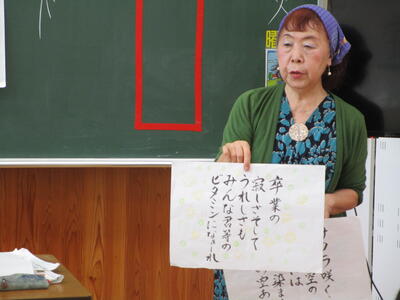 卒業の
寂しさそして
うれしさも
みんな君等の
ビタミンになされ
サクラ咲く
空の
染ま